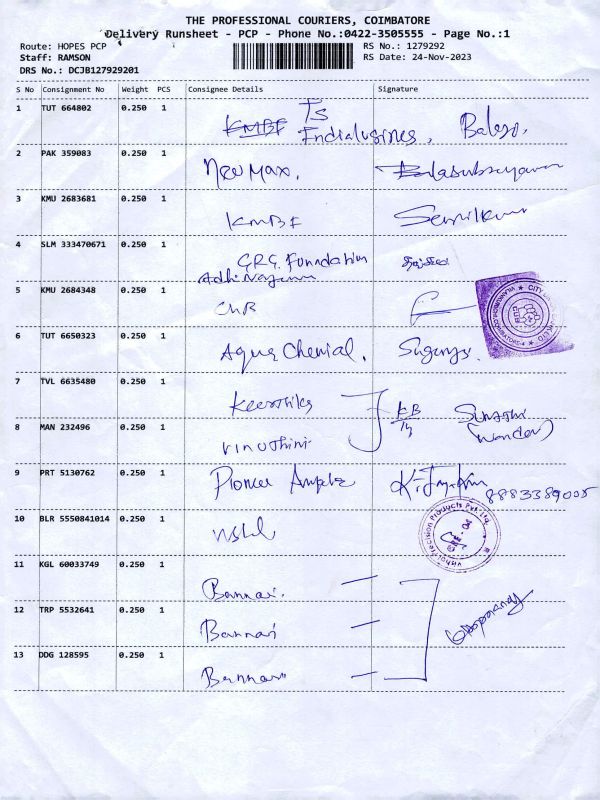 THE PROFESSIONAL COURIERS, COIMBATORE
Delivery Runsheet - PCP - Phone No.:0422-3505555 - Page No.:1
Route: HOPES PCP
RS No.: 1279292
Staff: RAMSON
RS Date: 24-Nov-2023
DRS No.: DCJB127929201
S No Consignment No Weight PCS Consignee Details Signature
1 TUT 664802 0.250 1 KMBF Ts
2 PAK 359083 0.250 1 New Max. Balasubrayaman
3 KMU 2683681 0.250 1 KMBF Senilkumar
4 SLM 333470671 0.250 1 G.R.G. Foundation
5 KMU 2684348 0.250 1
6 TUT 6650323 0.250 1 Aqua Chemial. Suganya
7 TVL 6635480 0.250 1 Keerthika KB
8 MAN 232496 0.250 1 Vinothini
9 PRT 5130762 0.250 1 8883389005
10 BLR 5550841014 0.250 1
Precision Products Pvt. Ltd.
11 KGL 60033749 0.250 1 Bannari.
12 TRP 5532641 0.250 1 Bannari
13 DDG 128595 0.250 1 Bannari